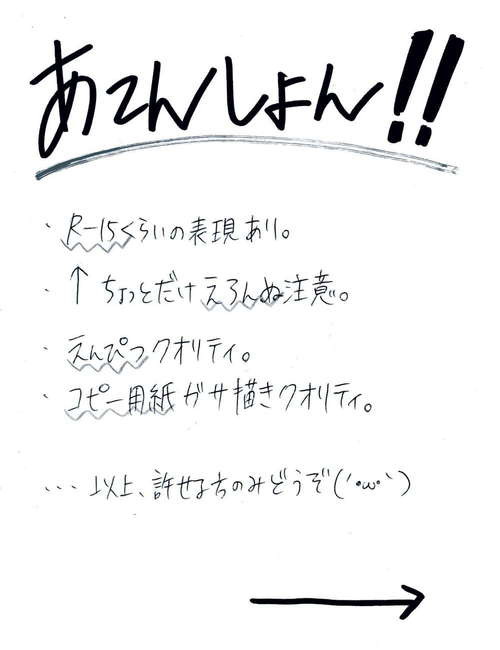 あてんしょん!!
・R-15くらいの表現あり。
・↑ちょっとだけえろんぬ注意。
・えんぴつクオリティ。
・コピー用紙ガサ描きクオリティ。
・・・以上、許せる方のみどうぞ(´・ω・`)
→